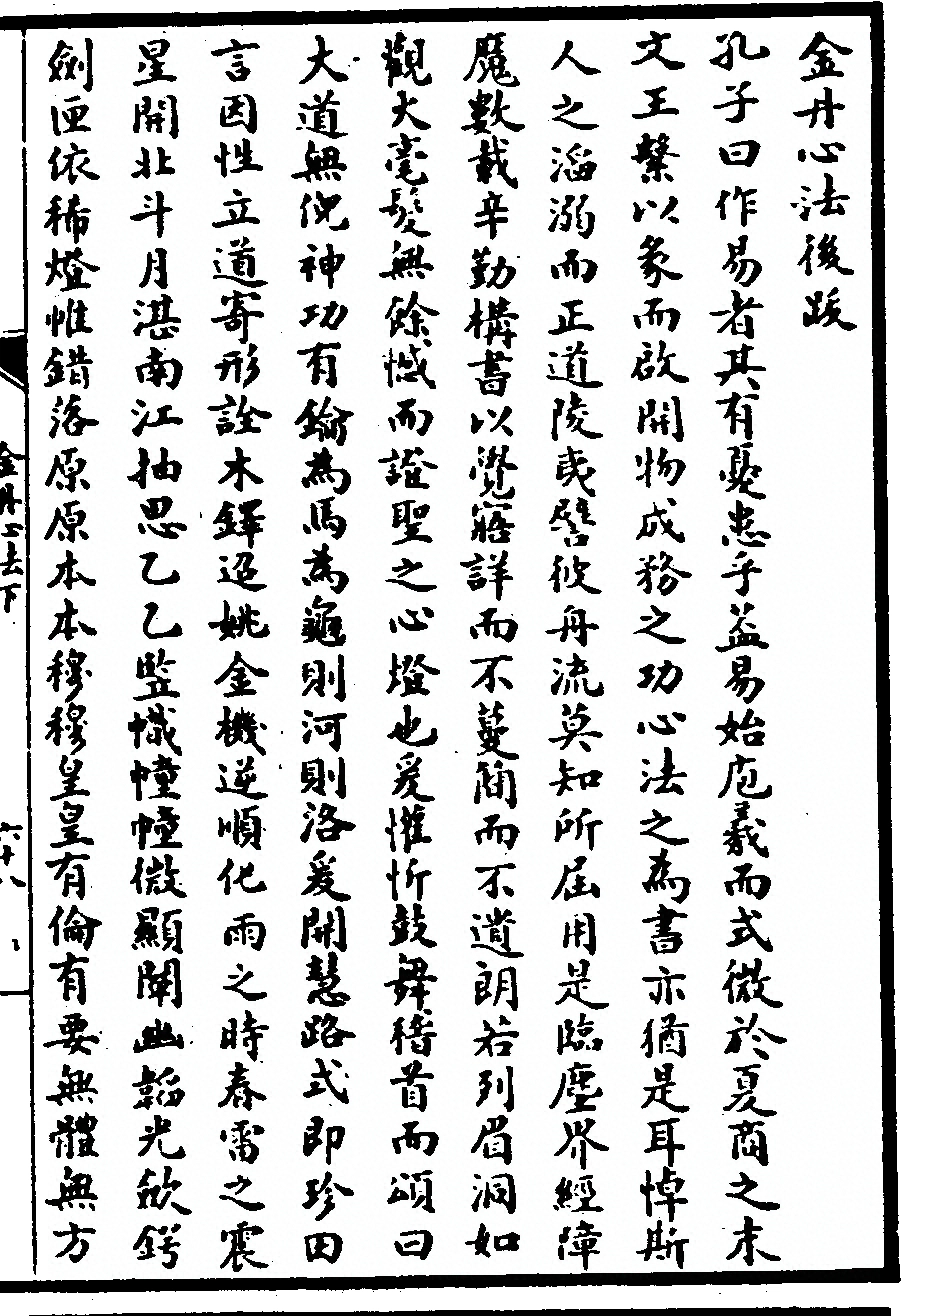 金丹心法後跋
孔子曰作易者其有憂患乎葢易始庖羲而式微於夏商之末
文王繫以彖而啟開物成務之功心法之為書亦猶是耳悼斯
人之滔溺而正道陵夷譬彼舟流莫知所屆用是臨塵界經障
魔數載辛勤構書以覺寤詳而不蔓簡而不遺朗若列眉洞如
觀火毫髮無餘憾而證聖之心燈也爰懽忻鼓舞稽首而頌曰
大道無倪神功有鑰為馬為龜則河則洛爰開慧路式即珍田
言因性立道寄形詮木鐸迢姚金機逆順化雨之時春雷之震
星開北斗月湛南江抽思乙乙監幟幢幢微顯闡幽韜光斂鍔
劍匣依稀燈帷錯落原原本本穆穆皇皇有倫有要無體無方
金丹心法下
六十八